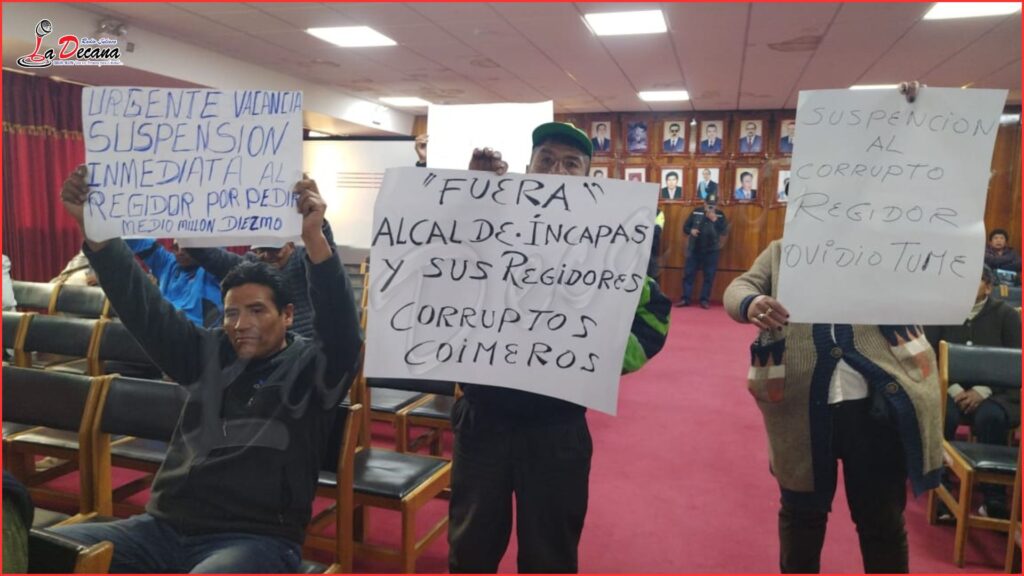 Radio Juliaca
La Decana
URGENTE VACANCIA
SUSPENSION
INMEDIATA AL
REGIDOR POR PEDIR
MEDIO MILLON DIEZMO
"FUERA"
ALCALDE·ÍNCAPAS
Y SUS REGIDORES
CORRUPTOS
COIMEROS
SUSPENCION
AL
CORRUPTO
REGIDOR
OVIDIO TUME